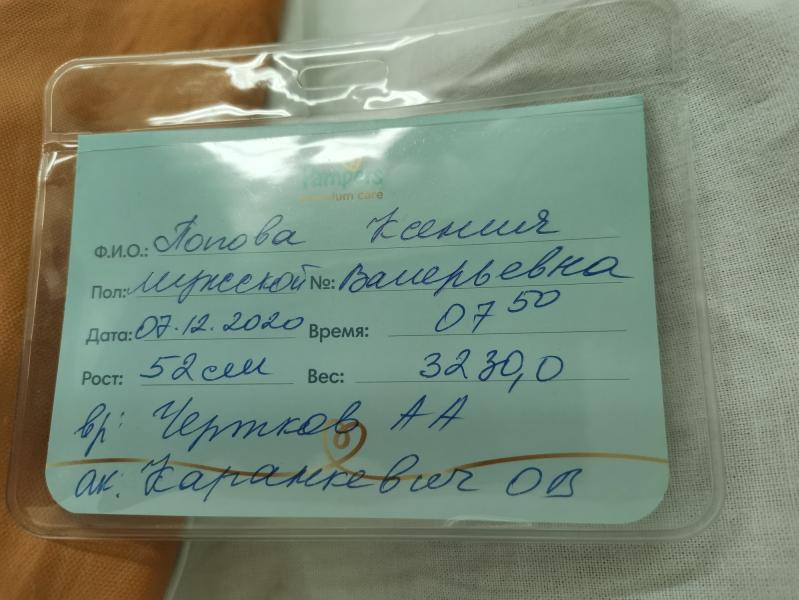 Pampers
premium care
Ф.И.О.: Попова Ксения
Пол: мужской №: Валерьевна
Дата: 07.12.2020 Время: 07 50
Рост: 52 см Вес: 3230,0
вр: Чертков АА
ак: Каранкевич ОВ